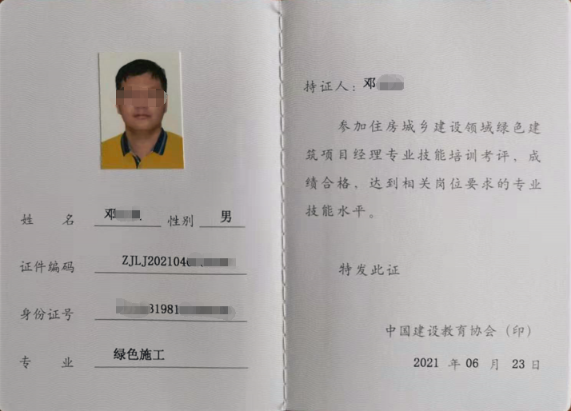 姓 名 邓 性别 男
证件编码 ZJLJ202104
身份证号 31981
专 业 绿色施工
持证人：邓
参加住房城乡建设领域绿色建
筑项目经理专业技能培训考评，成
绩合格，达到相关岗位要求的专业
技能水平。
特发此证
中国建设教育协会（印）
2021 年 06 月 23 日